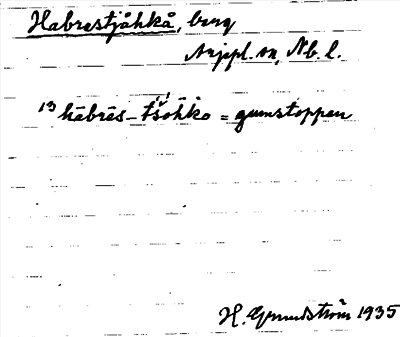 Habrestjåhkå, berg
Arjepl. sn, Nb. l.
13 häbrēs- tšohko = gumstoppen
H. Grundström 1935